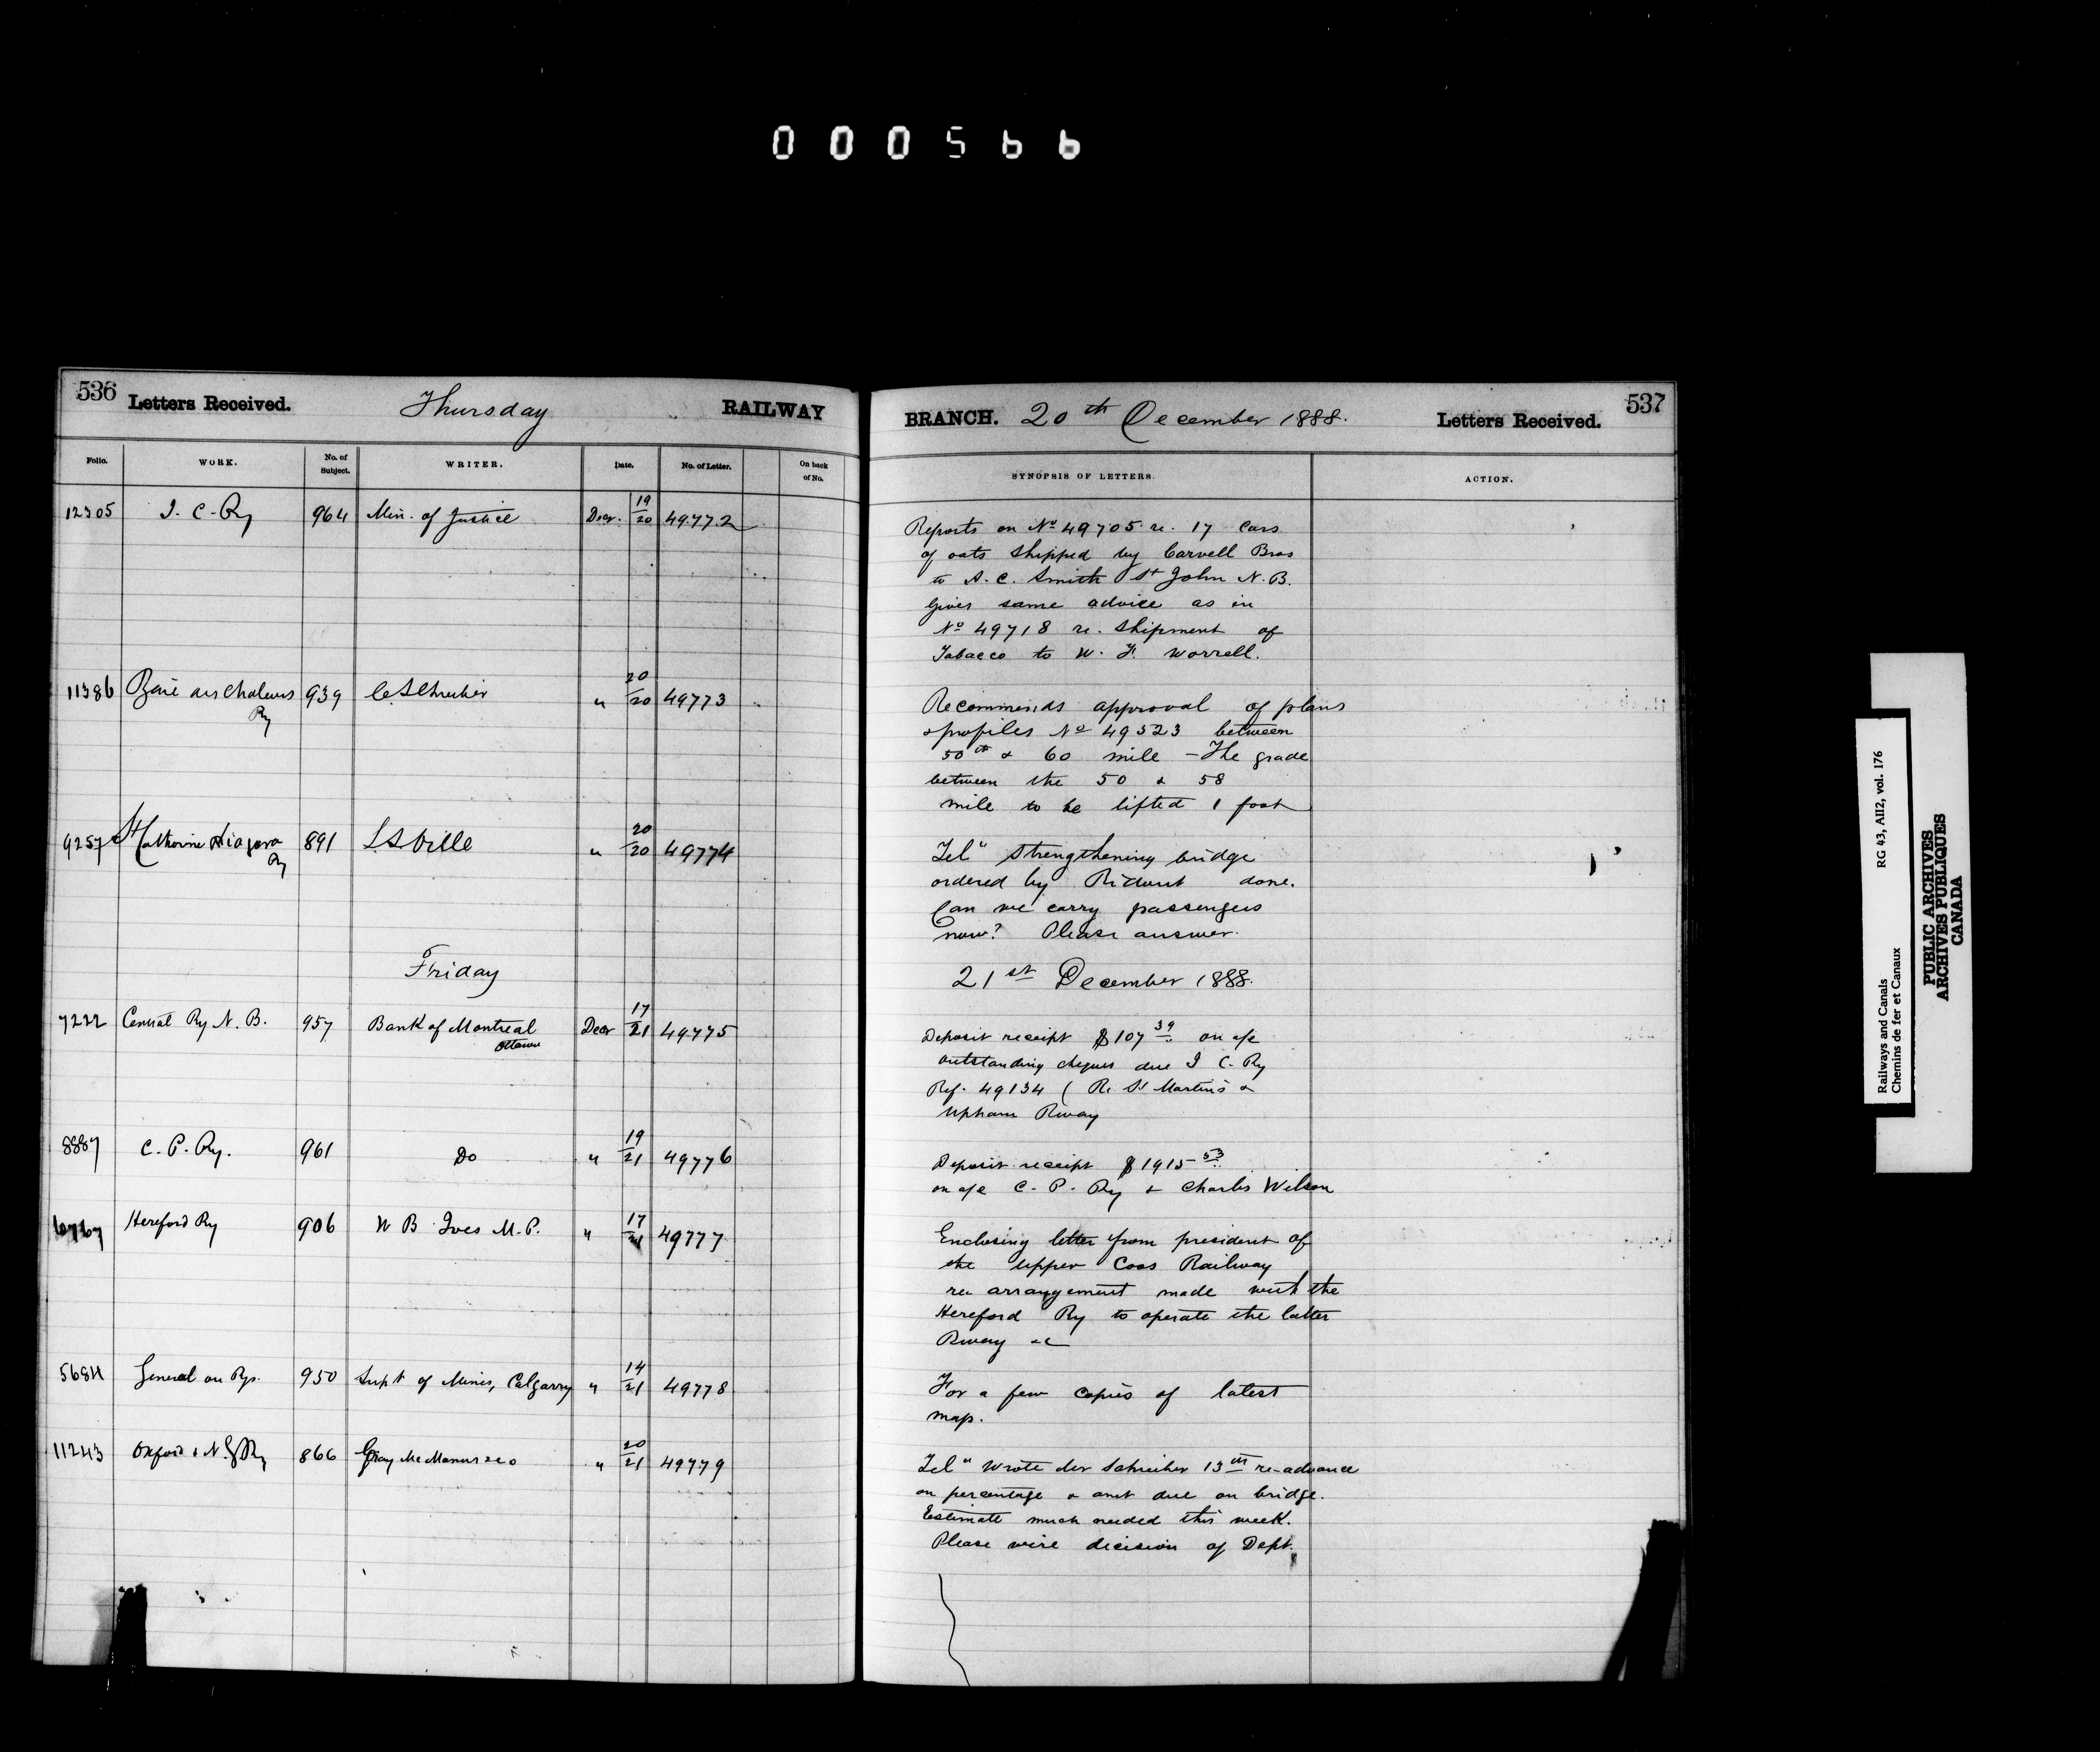 000566
536 Letters Received. Thursday RAILWAY
Folio. WORK. No. of Subject. WRITER. Date. No. of Letter. On back of No.
12305 I. C. Ry 964 Min. of Justice Decr. 19/20 49772
11386 Baie des Chaleurs Ry 939 C. Schreiber " 20/20 49773
9257 St Catharine Niagara Ry 891 L. S. Oille " 20/20 49774
Friday
7222 Central Ry N. B. 957 Bank of Montreal Ottawa Decr 17/21 49775
8887 C. P. Ry. 961 Do " 19/21 49776
Hereford Ry 906 W B Ives M. P. " 17/21 49777
5684 General on Rys. 950 Supt of Mines, Calgarry " 14/21 49778
11243 Oxford & N. G. Ry 866 Gray McManus &Co " 20/21 49779
BRANCH. 20th December 1888. Letters Received. 537
SYNOPSIS OF LETTERS. ACTION.
Reports on No 49705 re. 17 Cars
of oats shipped by Carvell Bros
to A. C. Smith St John N. B.
Gives same advice as in
No 49718 re. shipment of
Tabacco to W. F. Worrell.
Recommends approval of plans
& profiles No 49523 between
50th & 60 mile - The grade
between the 50 & 58
mile to be lifted 1 foot
Tel" Strengthening bridge
ordered by Ridout done.
Can we carry passengers
now? Please answer.
21st December 1888.
Deposit receipt $107 39 on a/c
outstanding cheques due I C. Ry
Ref. 49134 (Re St Martins &
Upham Rway
Deposit receipt $1915 53
on a/c C. P. Ry & Charles Wilson
Enclosing letter from president of
the Upper Coos Railway
re arrangement made with the
Hereford Ry to operate the latter
Rway &c
For a few copies of latest
map.
Tel" Wrote Schreiber 13th re-advance
on percentage & amt due on bridge.
Estimate much needed this week.
Please wire decision of Dept.
Railways and Canals RG 43, AII2, vol. 176
Chemins de fer et Canaux
PUBLIC ARCHIVES
ARCHIVES PUBLIQUES
CANADA